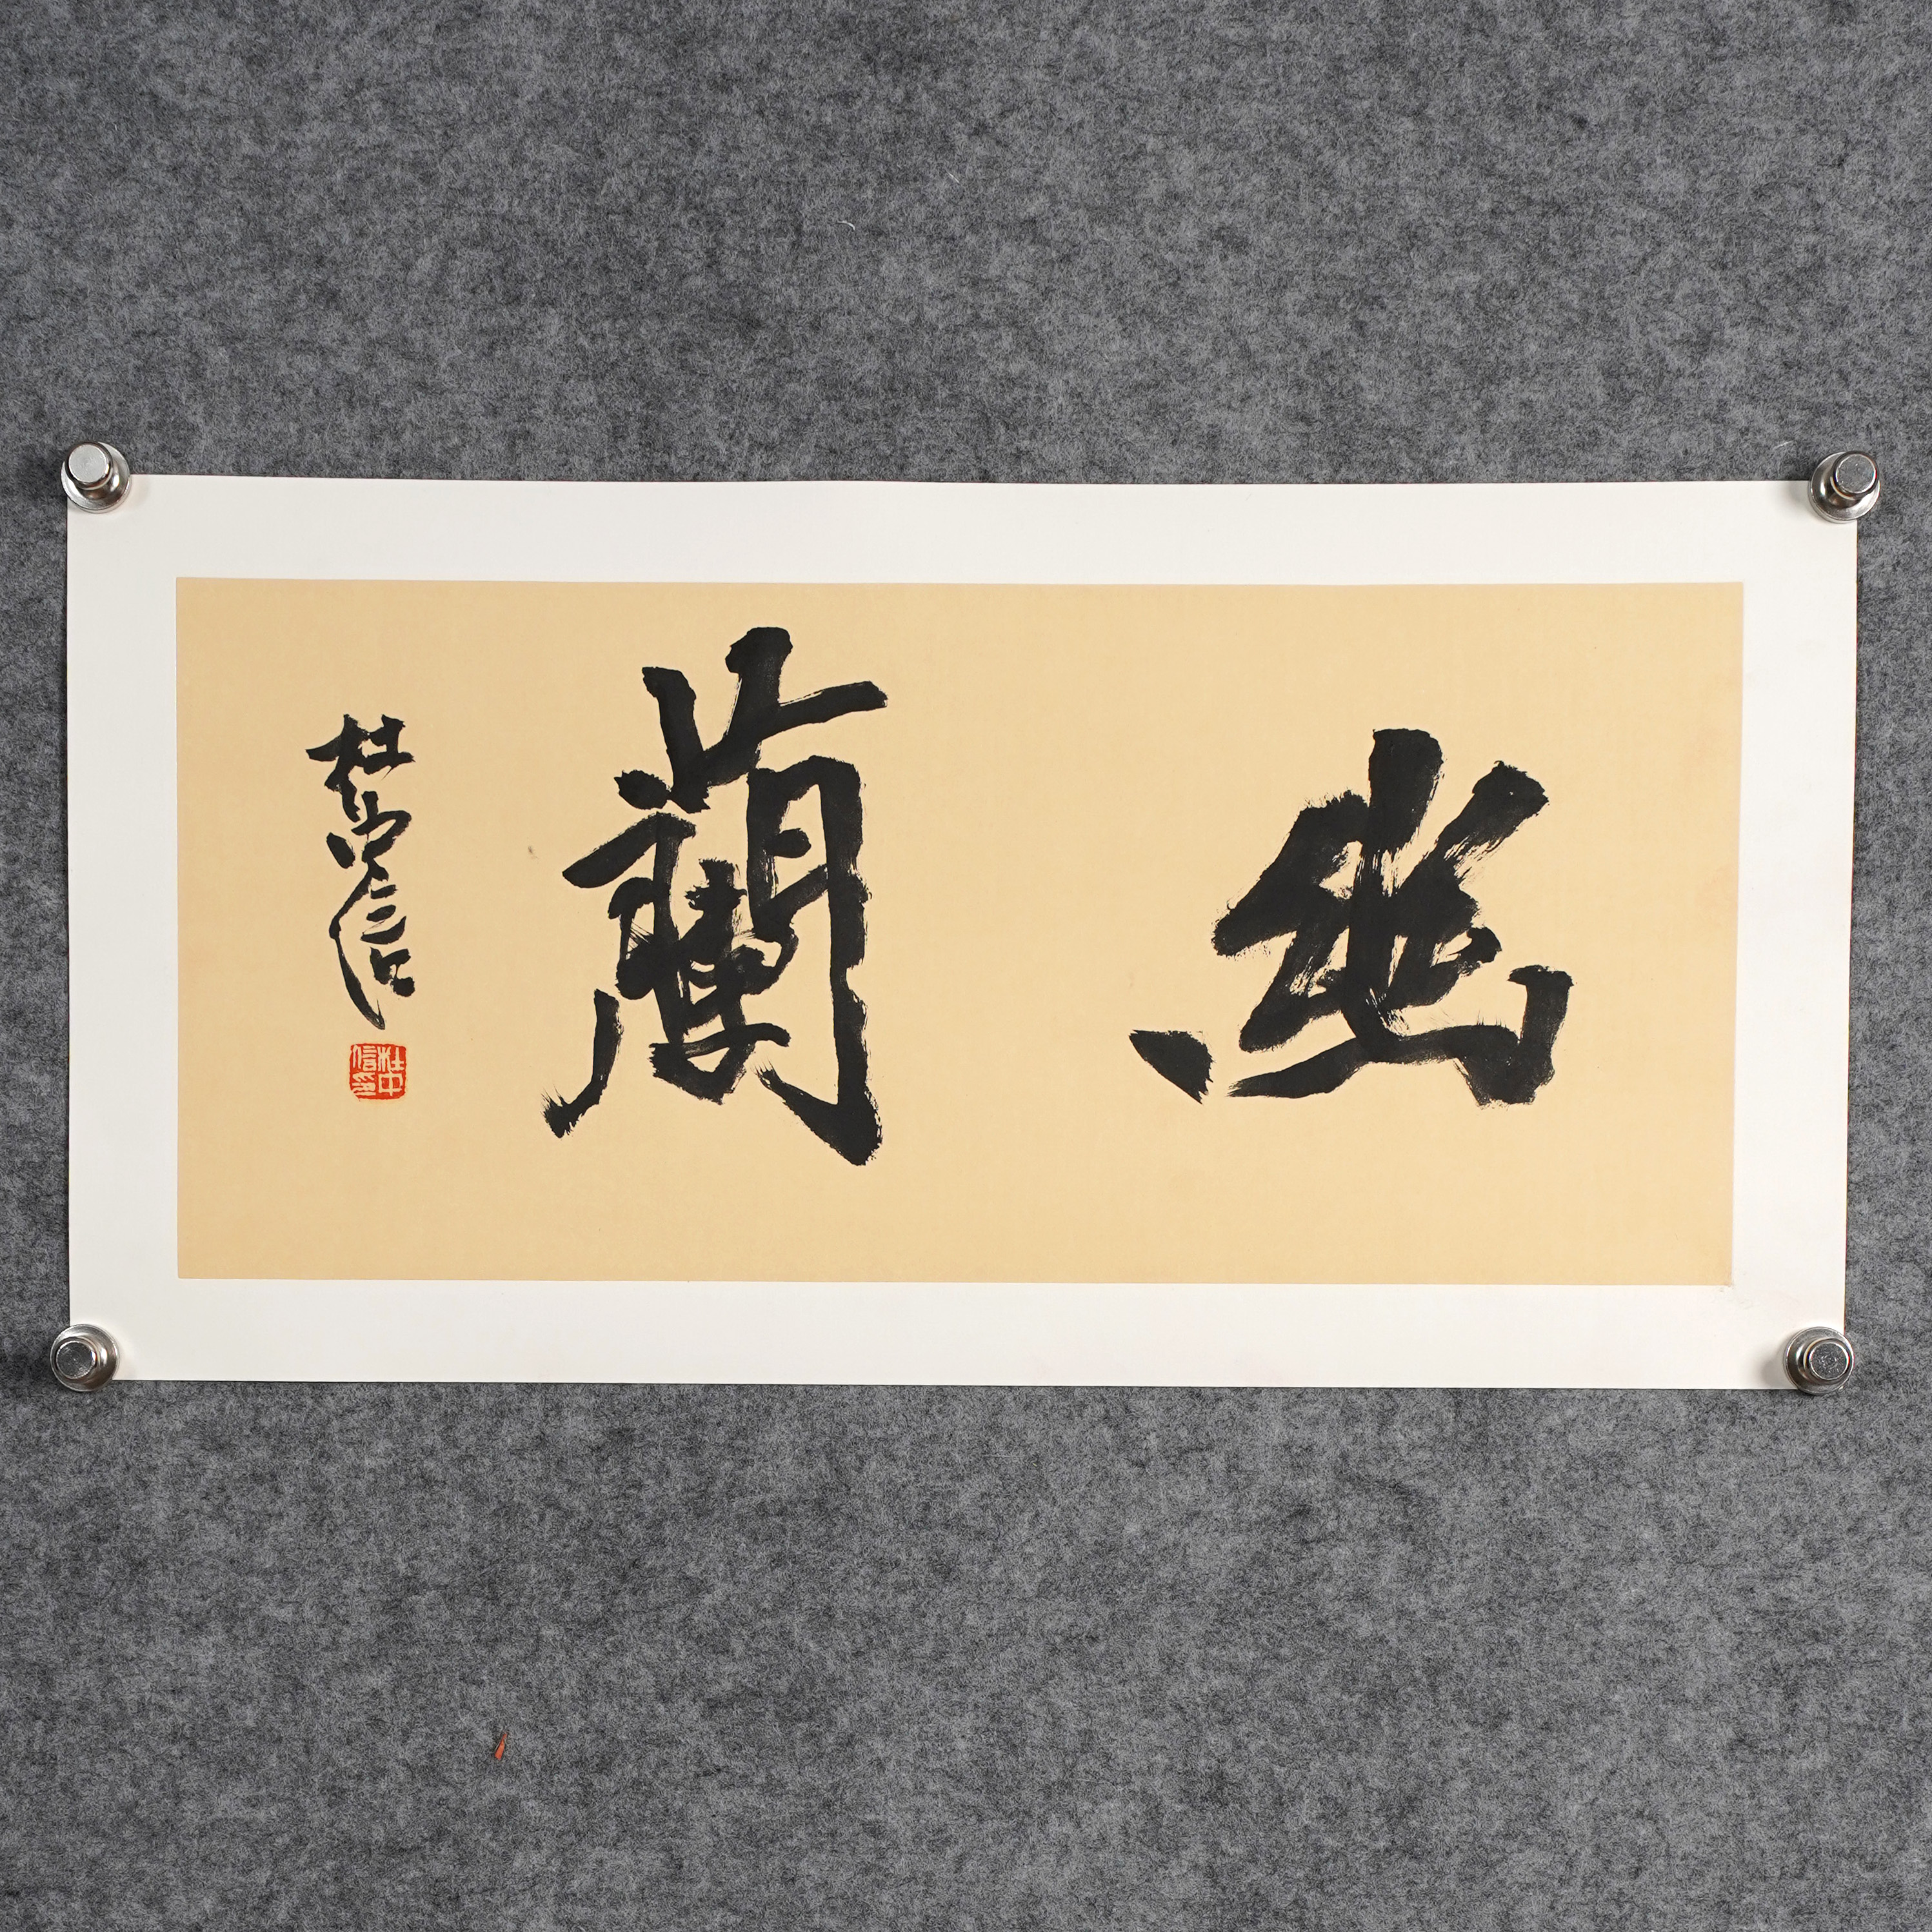 幽蘭
杜中信
杜中信印